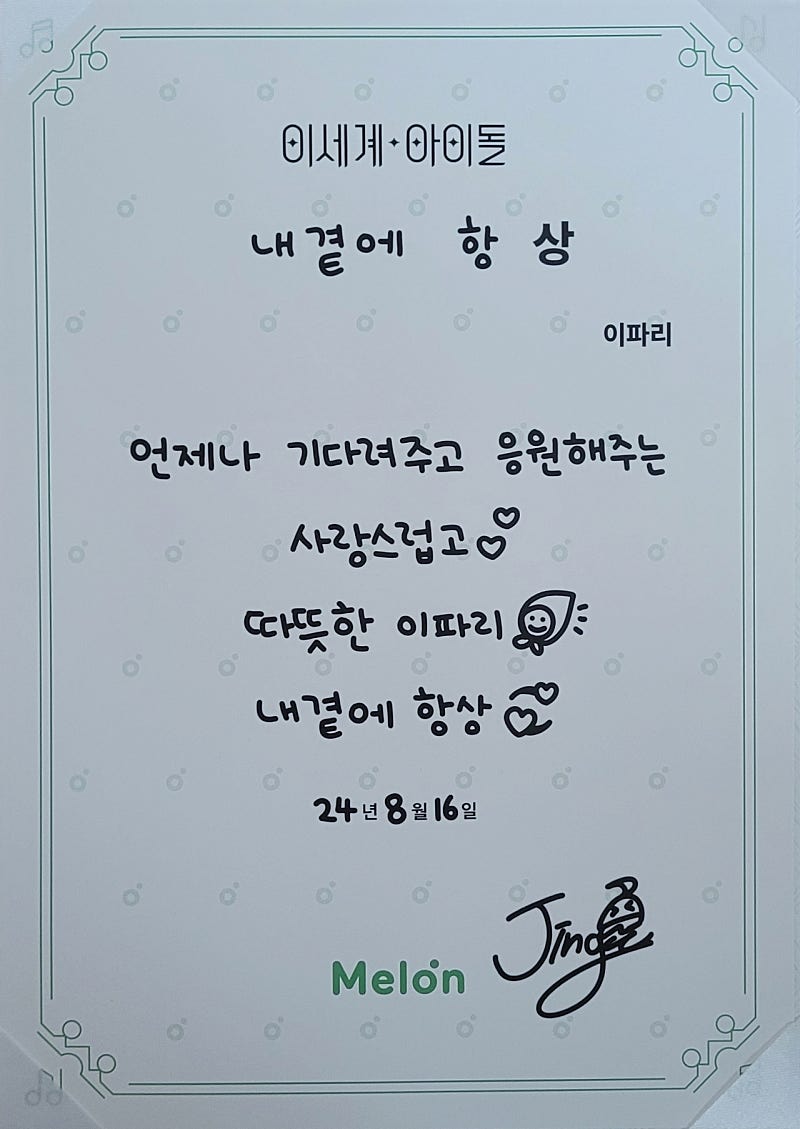 이세계·아이돌
내곁에 항상
이파리
언제나 기다려주고 응원해주는
사랑스럽고
따뜻한 이파리
내곁에 항상
24년 8월 16일
Jing
Melon